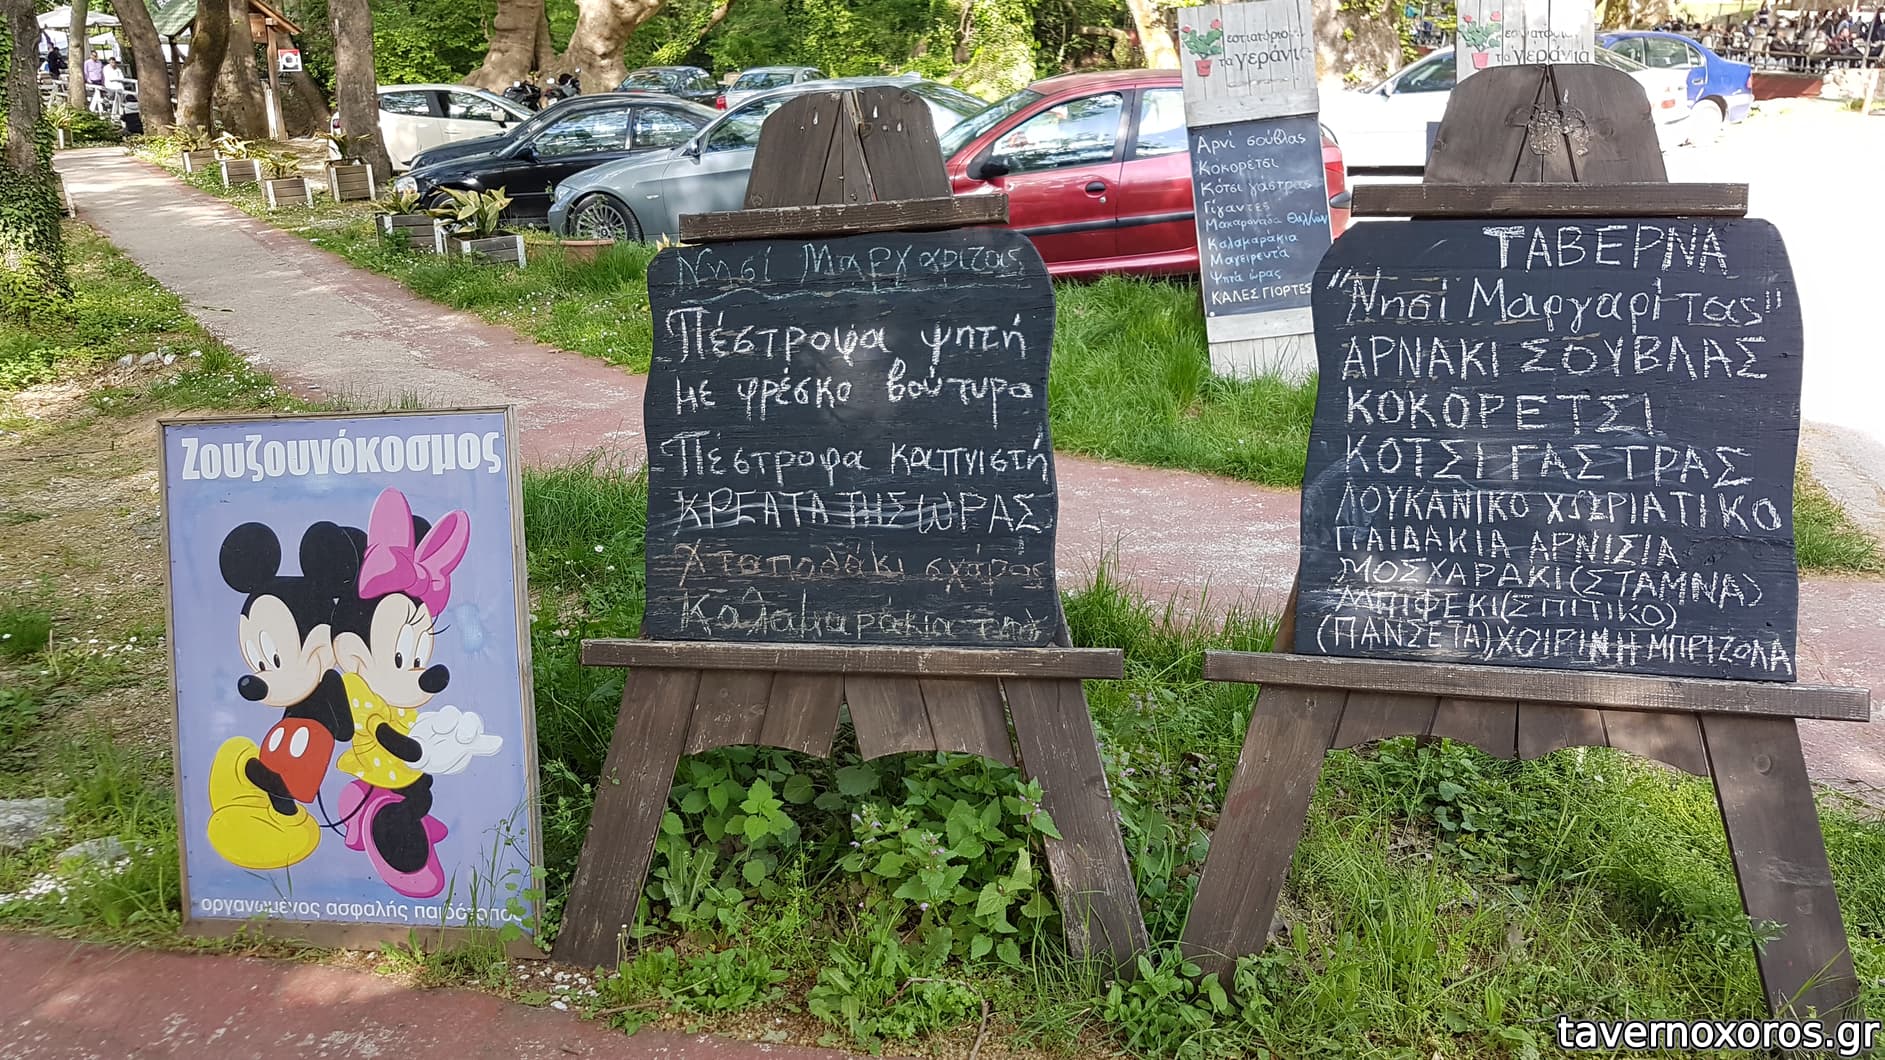 Ζουζουνόκοσμος
οργανωμένος ασφαλής παιδότοπος
Νησί Μαργαρίτας
Πέστροφα ψητή
με φρέσκο βούτυρο
Πέστροφα καπνιστή
ΚΡΕΑΤΑ ΤΗΣ ΩΡΑΣ
Χταποδάκι σχάρας
Καλαμαράκια
εστιατόριο
τα γεράνια
Αρνί σούβλας
Κοκορέτσι
Κότσι γάστρας
Γίγαντες
Μακαρονάδα Θαλ/νών
Καλαμαράκια
Μαγειρευτά
Ψητά ώρας
ΚΑΛΕΣ ΓΙΟΡΤΕΣ
τα γεράνια
ΤΑΒΕΡΝΑ
"Νησί Μαργαρίτας"
ΑΡΝΑΚΙ ΣΟΥΒΛΑΣ
ΚΟΚΟΡΕΤΣΙ
ΚΟΤΣΙ ΓΑΣΤΡΑΣ
ΛΟΥΚΑΝΙΚΟ ΧΩΡΙΑΤΙΚΟ
ΠΑΙΔΑΚΙΑ ΑΡΝΙΣΙΑ
ΜΟΣΧΑΡΑΚΙ (ΣΤΑΜΝΑ)
ΜΠΙΦΕΚΙ (ΣΠΙΤΙΚΟ)
(ΠΑΝΣΕΤΑ), ΧΟΙΡΙΝΗ ΜΠΡΙΖΟΛΑ
tavernoxoros.gr